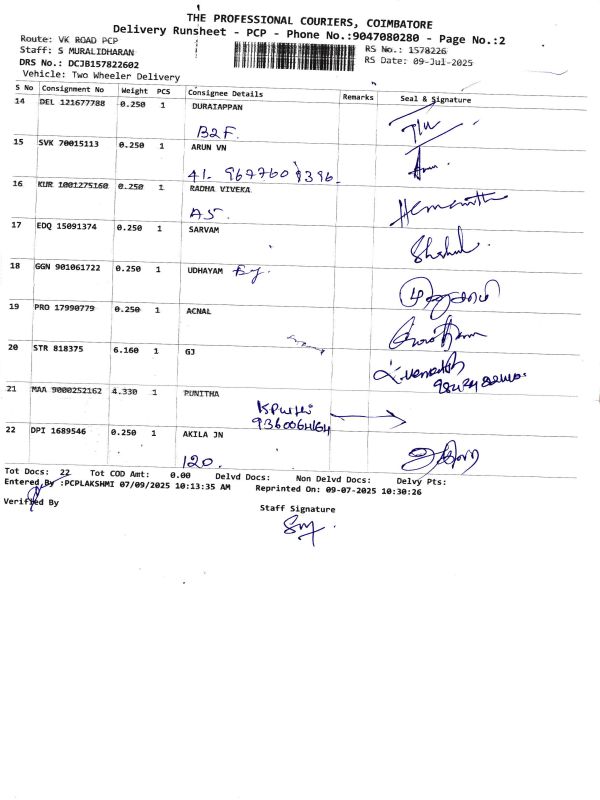 THE PROFESSIONAL COURIERS, COIMBATORE
Delivery Runsheet - PCP - Phone No.:9047080280 - Page No.:2
Route: VK ROAD PCP
Staff: S MURALIDHARAN
RS No.: 1578226
DRS No.: DCJB157822602
RS Date: 09-Jul-2025
Vehicle: Two Wheeler Delivery
S No Consignment No Weight PCS Consignee Details Remarks Seal & Signature
14 DEL 121677788 0.250 1 DURAIAPPAN
B2F.
15 SVK 70015113 0.250 1 ARUN VN
41. 9677609396.
16 KUR 1001275160 0.250 1 RADHA VIVEKA
A5.
17 EDQ 15091374 0.250 1 SARVAM
18 GGN 901061722 0.250 1 UDHAYAM
19 PRO 17990779 0.250 1 ACNAL
20 STR 818375 6.160 1 GJ
21 MAA 9000252162 4.330 1 PUNITHA
9360064164
22 DPI 1689546 0.250 1 AKILA JN
120.
Tot Docs: 22 Tot COD Amt: 0.00 Delvd Docs: Non Delvd Docs: Delvy Pts:
Entered By :PCPLAKSHMI 07/09/2025 10:13:35 AM Reprinted On: 09-07-2025 10:30:26
Verified By
Staff Signature